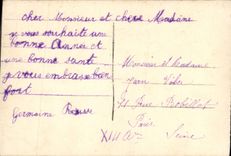 cher Monsieur et chere Madame
je vous souhaite une
bonne Anner et
une bonne santé
je vous embrasse bien
fort
Germaine
Monsieur et Madame
Jean
71 Rue Robillot
Paris
XIII Ar
Seine